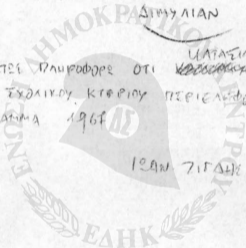 ΔΙΜΥΛΙΑΝ
ΠΛΗΡΟΦΟΡΩ ΟΤΙ
ΣΧΟΛΙΚΟΥ ΚΤΙΡΙΟΥ ΠΕΡΙΕΛΗΦΘ
ΑΜΜΑ 1967
ΙΩΑΝ ΖΙΓΔΗΣ
ΕΝΩΣ ΗΜΟΚΡΑΤΙΚΟ ΚΕΝΤΡΟΥ
ΕΔΗΚ